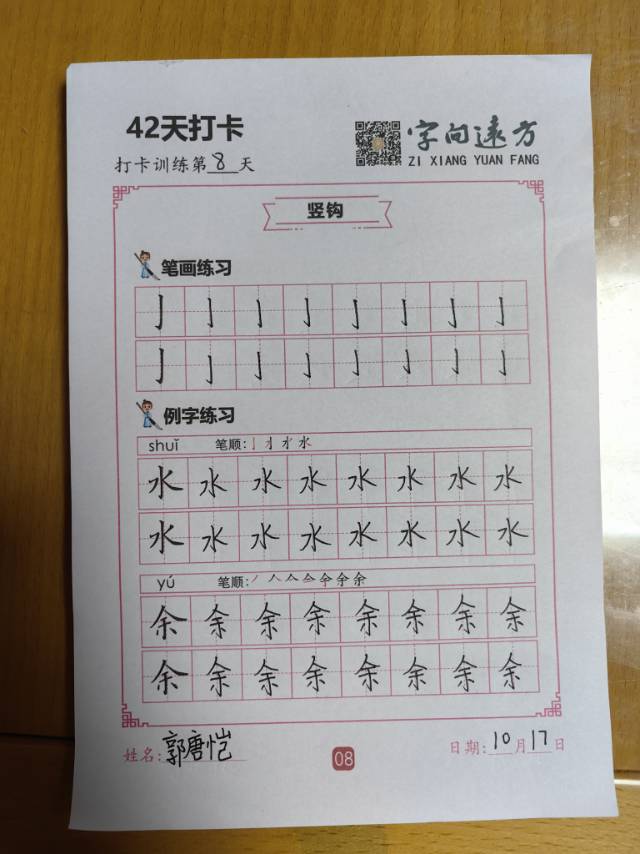 42天打卡
字向远方
ZI XIANG YUAN FANG
打卡训练第8天
竖钩
笔画练习
亅亅亅亅亅亅亅亅
亅亅亅亅亅亅亅亅
例字练习
shuǐ 笔顺:
水水水水水水水水
水水水水水水水水
yú 笔顺:
余余余余余余余余
余余余余余余余余
姓名:郭唐恺
08
日期:10月17日